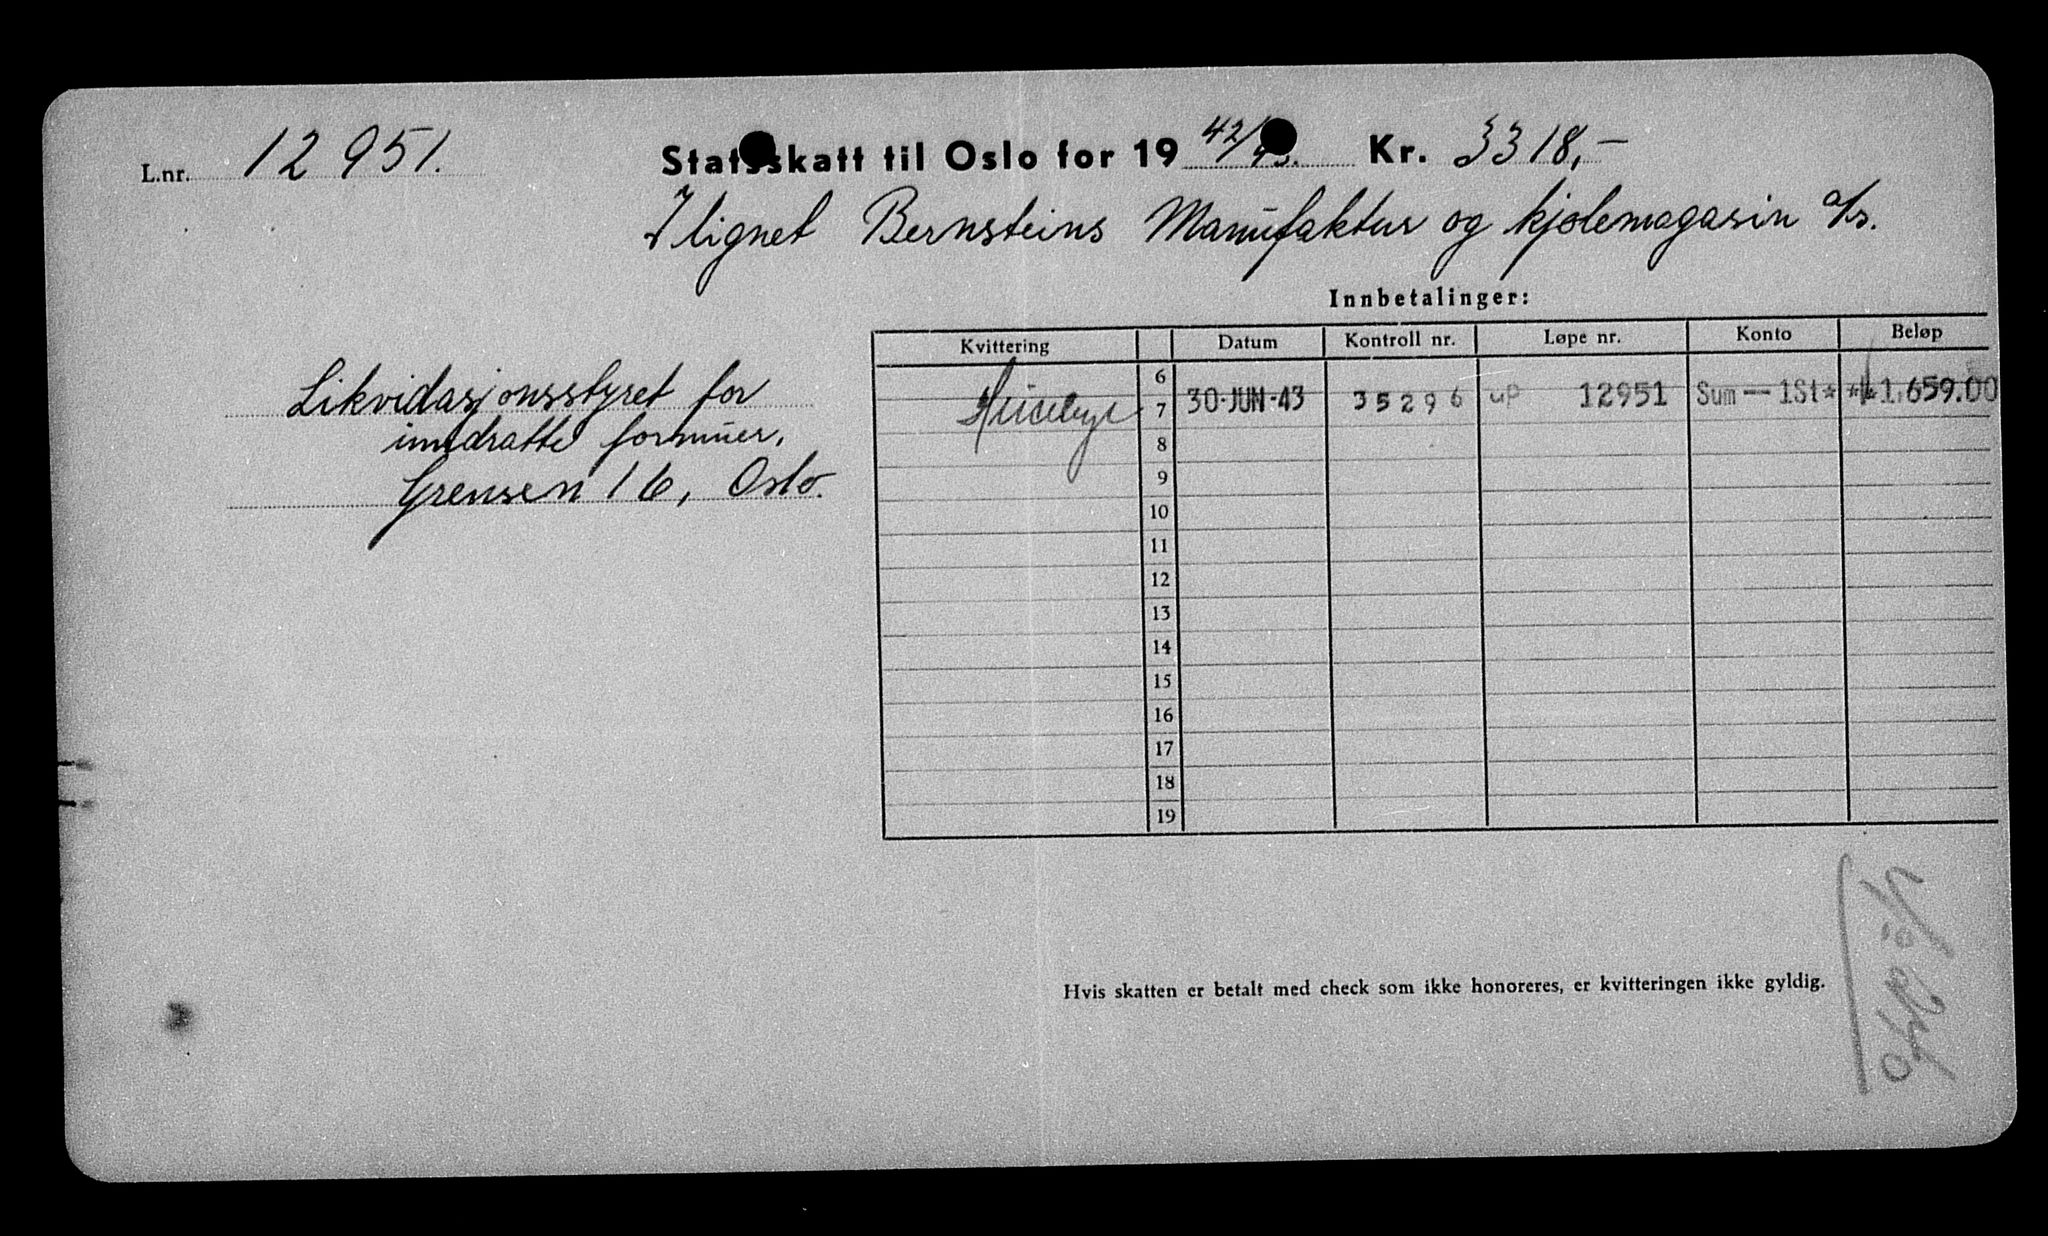 L.nr. 12951. Statsskatt til Oslo for 19 42/43. Kr. 3318,-
Ilignet Bernsteins Manufaktur og kjolemagasin a/s.
Likvidasjonsstyret for
inndratte formuer,
Grensen 16, Oslo.
Innbetalinger:
Kvittering Datum Kontroll nr. Løpe nr. Konto Beløp
6
7 30-JUN-43 35296 up 12951 Sum — 1St* 1.659.00
8
9
10
11
12
13
14
15
16
17
18
19
Hvis skatten er betalt med check som ikke honoreres, er kvitteringen ikke gyldig.